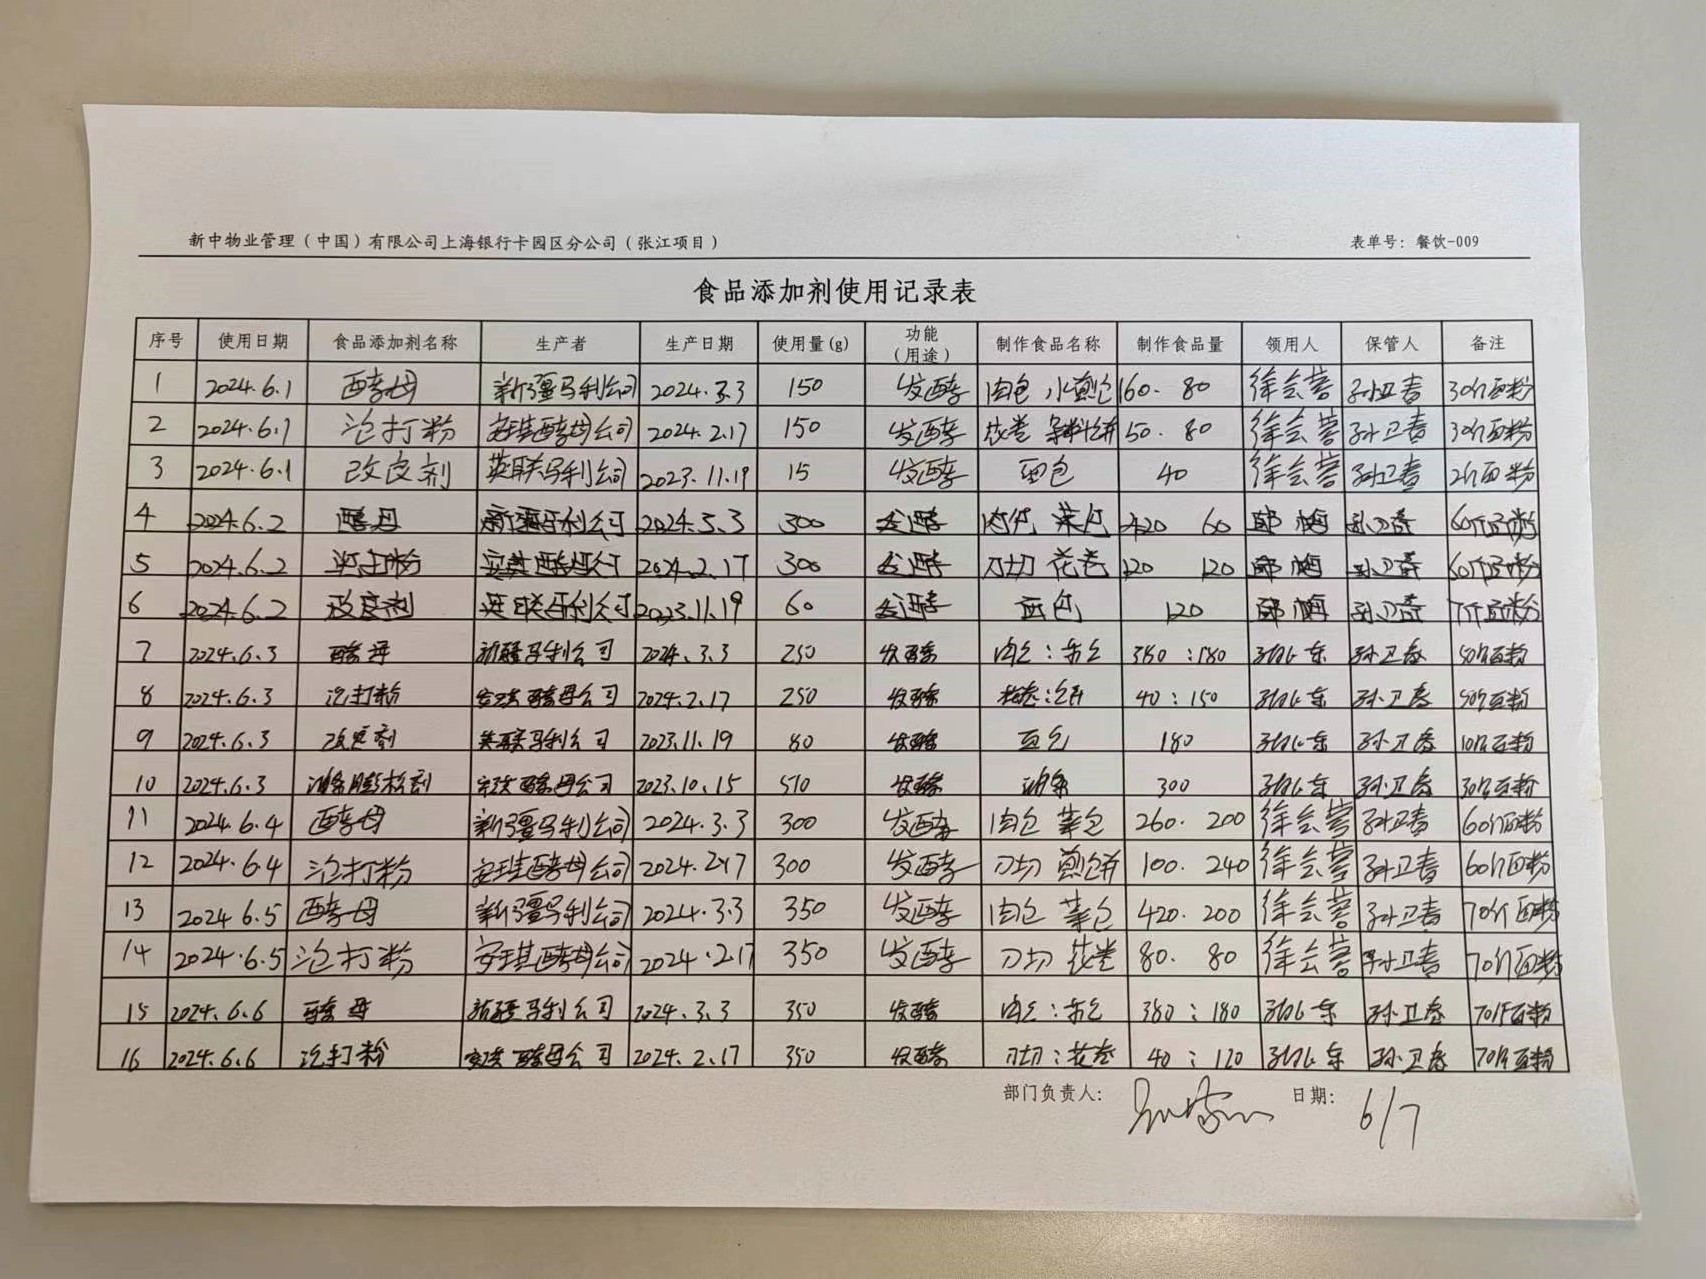 新中物业管理（中国）有限公司上海银行卡园区分公司（张江项目） 表单号：餐饮-009
食品添加剂使用记录表
序号 使用日期 食品添加剂名称 生产者 生产日期 使用量(g) 功能（用途） 制作食品名称 制作食品量 领用人 保管人 备注
1 2024.6.1 酵母 新疆马利公司 2024.3.3 150 发酵 肉包 水煎包 160. 80 徐会营 孙卫春 30斤面粉
2 2024.6.1 泡打粉 安琪酵母公司 2024.2.17 150 发酵 花卷 杂粮饼 50. 80 徐会营 孙卫春 30斤面粉
3 2024.6.1 改良剂 英联马利公司 2023.11.19 15 发酵 面包 40 徐会营 孙卫春 2斤面粉
4 2024.6.2 酵母 新疆马利公司 2024.3.3 300 发酵 肉包 菜包 420 60 邱梅 孙卫春 60斤面粉
5 2024.6.2 泡打粉 安琪酵母公司 2024.2.17 300 发酵 刀切 花卷 120 120 邱梅 孙卫春 60斤面粉
6 2024.6.2 改良剂 英联马利公司 2023.11.19 60 发酵 面包 120 邱梅 孙卫春 7斤面粉
7 2024.6.3 酵母 新疆马利公司 2024.3.3 250 发酵 肉包： 380：180 孙卫春 50斤面粉
8 2024.6.3 泡打粉 安琪酵母公司 2024.2.17 250 发酵 40：150 孙卫春 50斤面粉
9 2024.6.3 改良剂 英联马利公司 2023.11.19 80 发酵 面包 180 孙卫春 10斤面粉
10 2024.6.3 油条膨松剂 安琪酵母公司 2023.10.15 510 发酵 油条 300 孙卫春 30斤面粉
11 2024.6.4 酵母 新疆马利公司 2024.3.3 300 发酵 肉包 菜包 260. 200 徐会营 孙卫春 60斤面粉
12 2024.6.4 泡打粉 安琪酵母公司 2024.2.17 300 发酵 刀切 煎包饼 100. 240 徐会营 孙卫春 60斤面粉
13 2024 6.5 酵母 新疆马利公司 2024.3.3 350 发酵 肉包 菜包 420. 200 徐会营 孙卫春 70斤面粉
14 2024.6.5 泡打粉 安琪酵母公司 2024.2.17 350 发酵 刀切 花卷 80. 80 徐会营 孙卫春 70斤面粉
15 2024.6.6 酵母 新疆马利公司 2024.3.3 350 发酵 肉包： 380：180 孙卫春 70斤面粉
16 2024.6.6 泡打粉 安琪酵母公司 2024.2.17 350 发酵 刀切：花卷 40：120 孙卫春 70斤面粉
部门负责人： 日期： 6/7